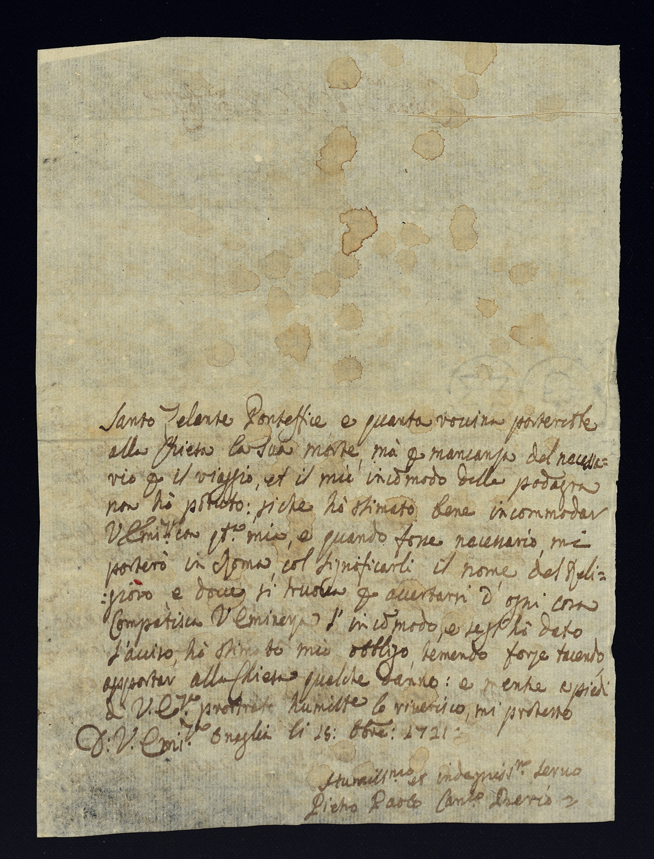 Santo Zelante Ponteffice e quanta rovina portereble
alla Chiesa la sua morte, mà p mancanza del necessa=
rio p il viaggio, et il mio incõmodo della podagra
non hò potuto: siche hò stimato bene incommodar
V Emin.ª con q.ta mia, e quando fosse necessario, mi
porterò in Roma, col significarli il nome del Reli=
:gioso e dove si truova p accertarvi d'ogni cosa
Compatisca V Eminenza l'incõmodo, e se gl'hò dato
l'aviso, hò stimato mio obbligo, temendo forze tacendo,
apportar alla Chiesa qualche danno: e mentre a piedi
di V. E.ª prostrato humilte lo riverisco, mi protesto
D: V: Emin.ª Oneglia li 18: 1721:
Humiliss.mo et indegniss.mo servo
Pietro Paolo